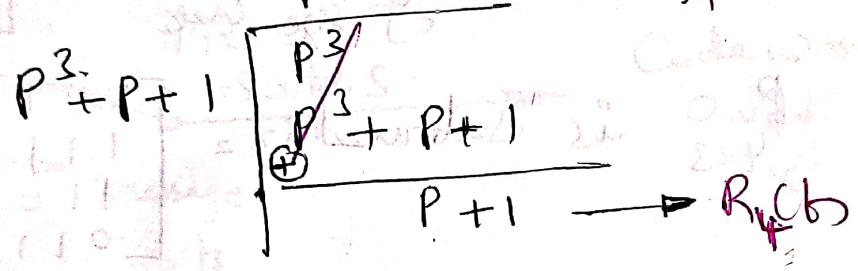 p³
p³ + p + 1
p³ + p + 1
⊕
p + 1 → R₄(b)